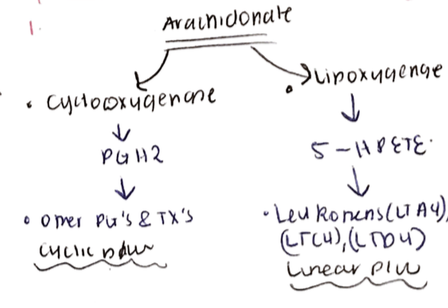 1.
Arachidonate
• Cyclooxygenase
• Lipoxygenase
PGH2
5-HPETE
• Other PG's & TX's
• Leukoriens (LTA4),
(LTC4), (LTD4)
Cyclic
Linear